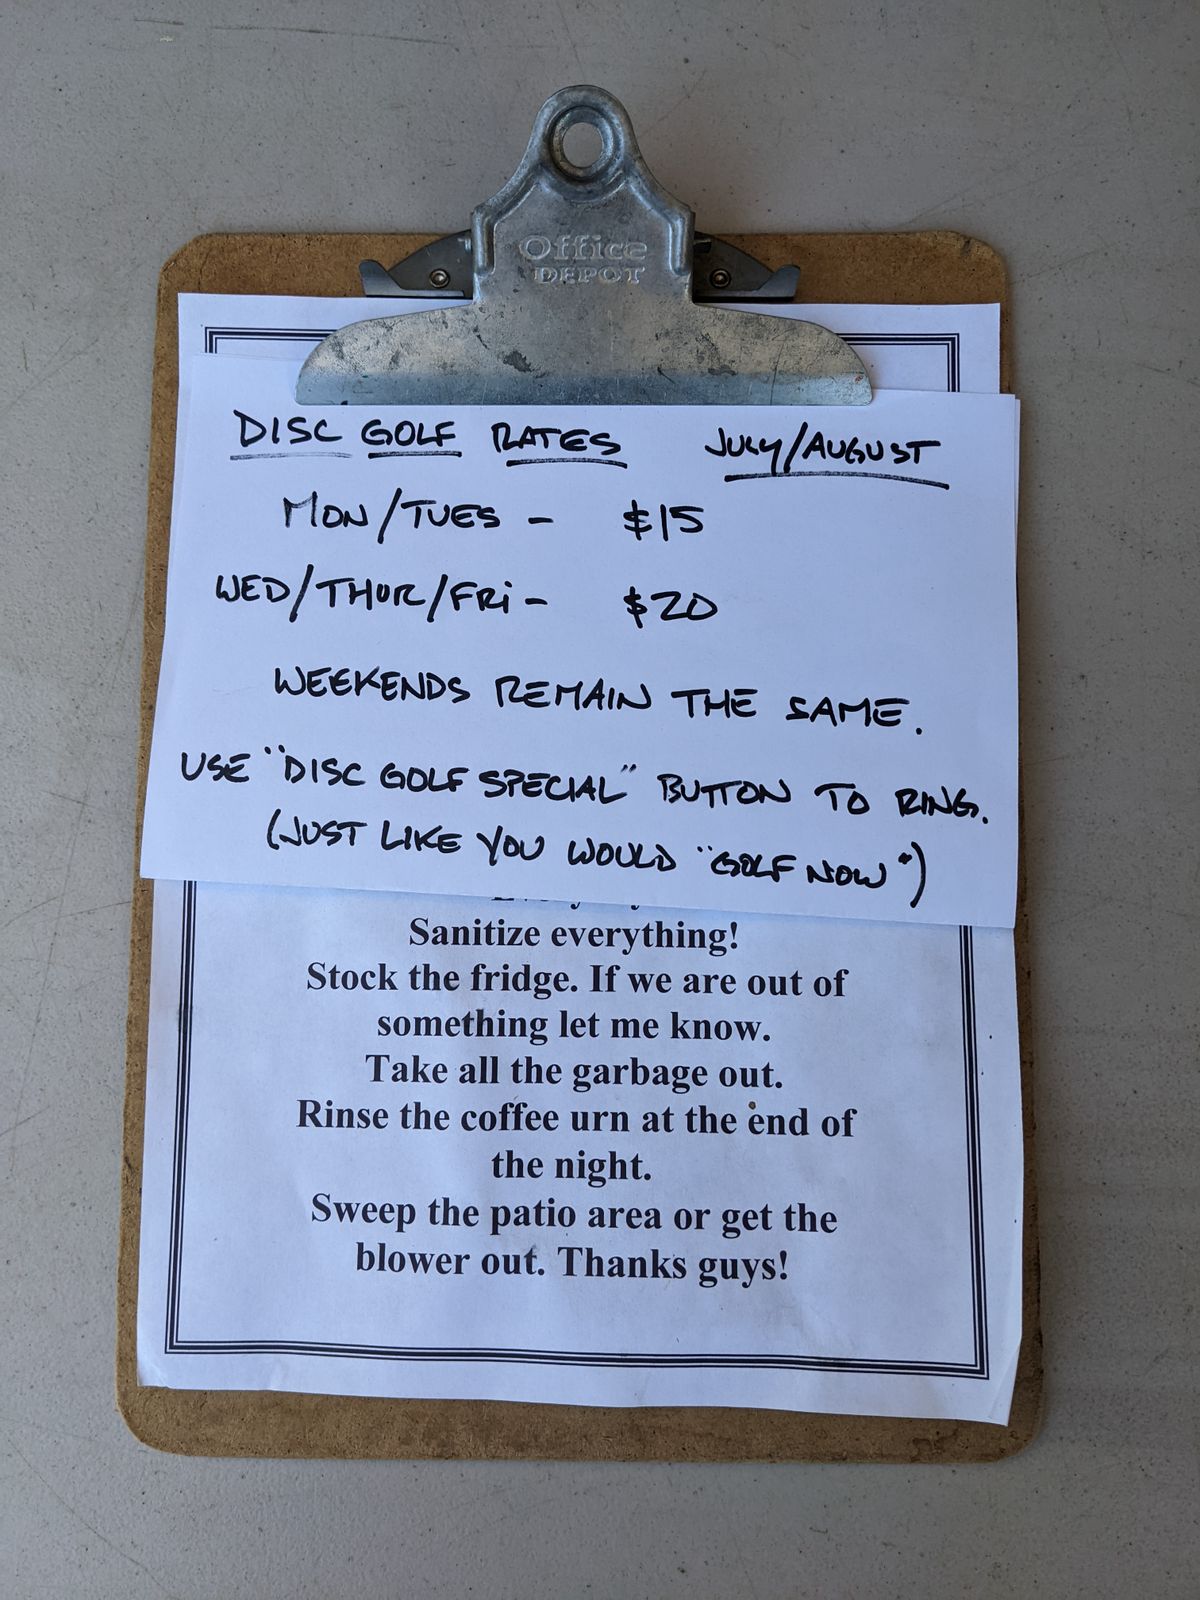 Office
DEPOT
DISC GOLF RATES JULY/AUGUST
MON/TUES - $15
WED/THUR/FRi - $20
WEEKENDS REMAIN THE SAME.
USE "DISC GOLF SPECIAL" BUTTON TO RING.
(JUST LIKE YOU WOULD "GOLF NOW")
Sanitize everything!
Stock the fridge. If we are out of
something let me know.
Take all the garbage out.
Rinse the coffee urn at the end of
the night.
Sweep the patio area or get the
blower out. Thanks guys!